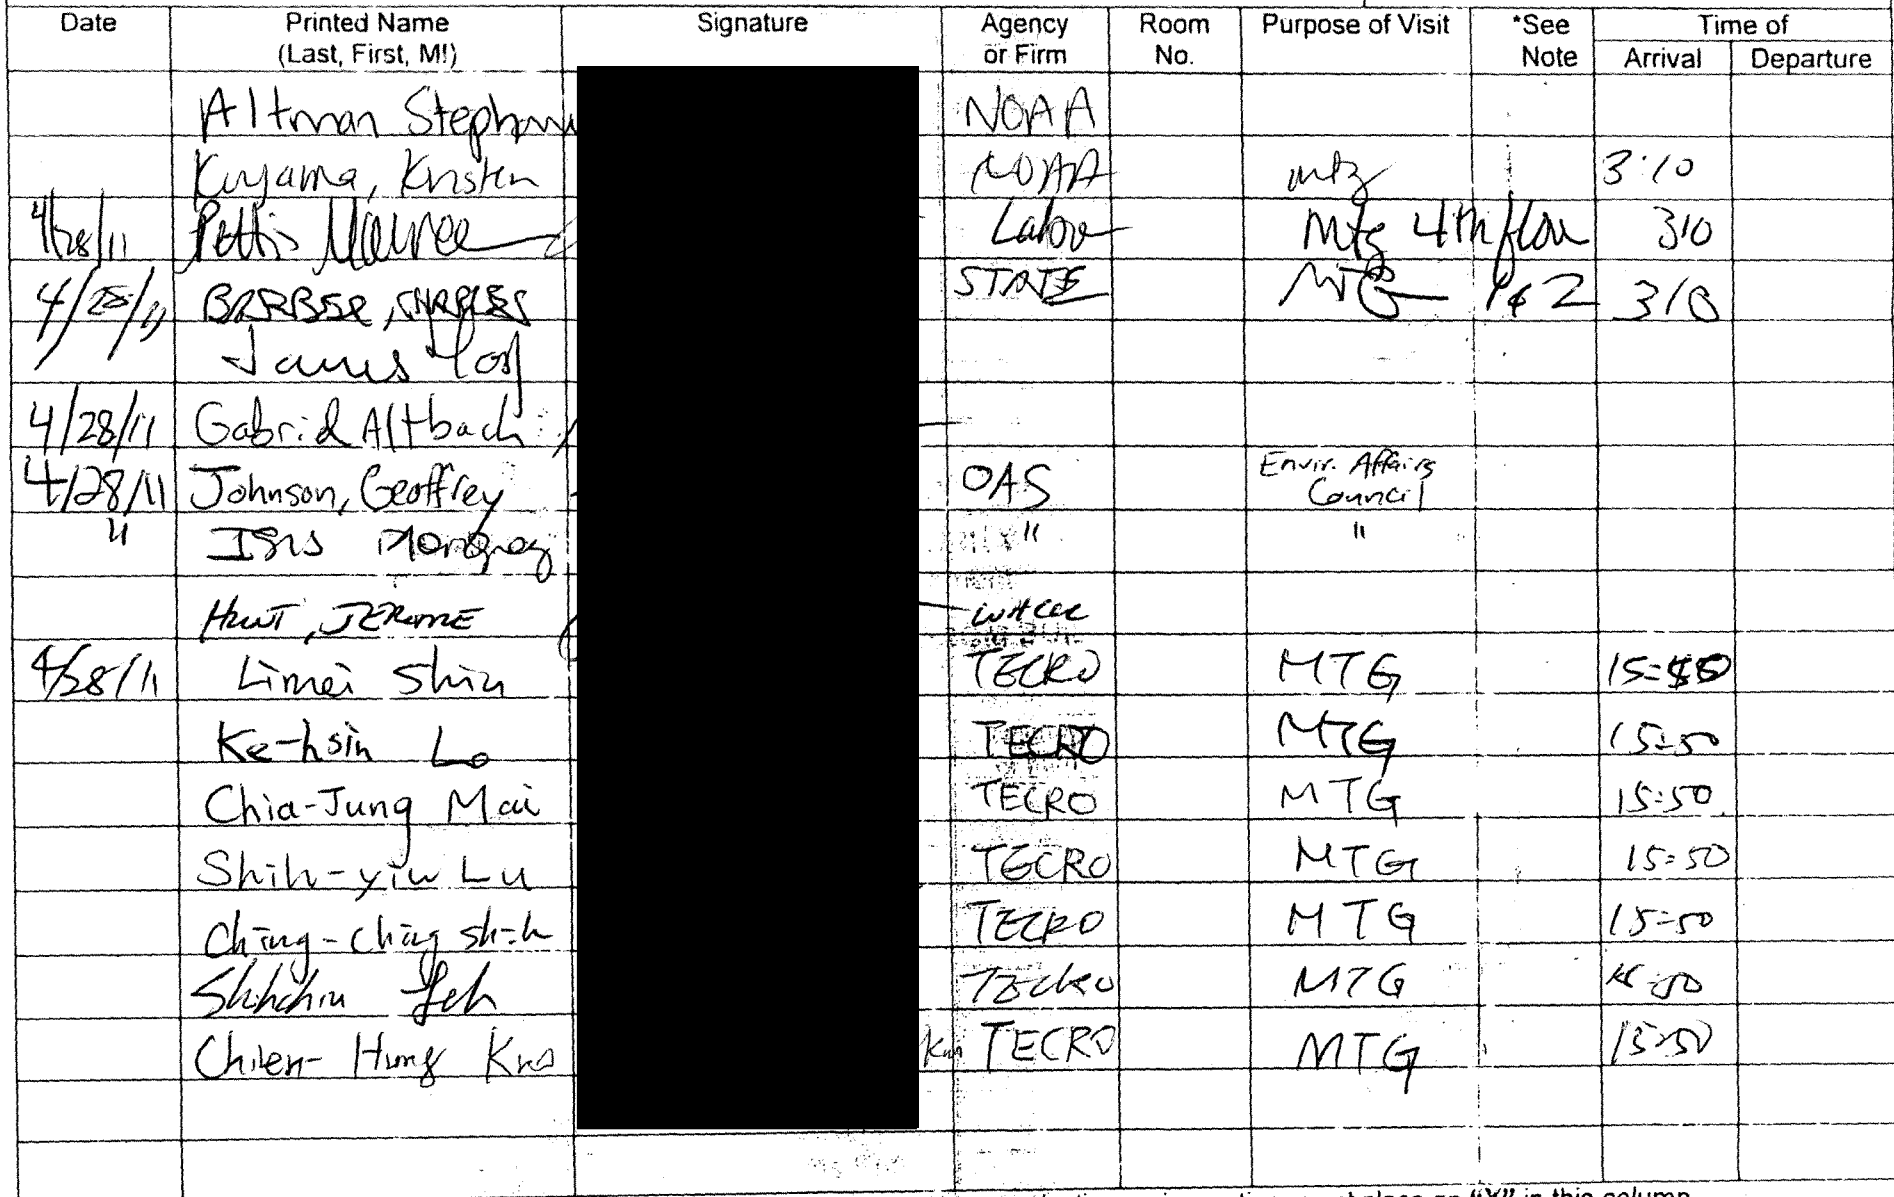 Date Printed Name Signature Agency Room Purpose of Visit *See Time of
(Last, First, MI) or Firm No. Note Arrival Departure
Altman NOAA
Kuyama, Kristen NOAA mtg 3:10
4/28/11 Pettis Maureen Labor Mtg 4th floor 310
4/28/11 BARBER, CHARLES STATE MTG 1&2 310
James
4/28/11 Gabriel Altbach
4/28/11 Johnson, Geoffrey OAS Envir. Affairs
Council
" ISIS " "
HUNT, JEROME
4/28/11 Limei Shiu TECRO MTG
Ke-hsin Lo TECRO MTG 15:50
Chia-Jung Mai TECRO MTG 15:50
Shih-yiu Lu TECRO MTG 15:50
Ching-ching shih TECRO MTG 15:50
Yeh TECRO MTG 15:50
Chien-Hung Kuo TECRO MTG 15:50
"X" in this column